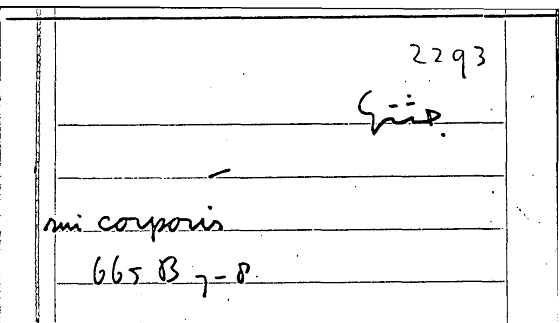 2293
sui corporis
665 B 7-8